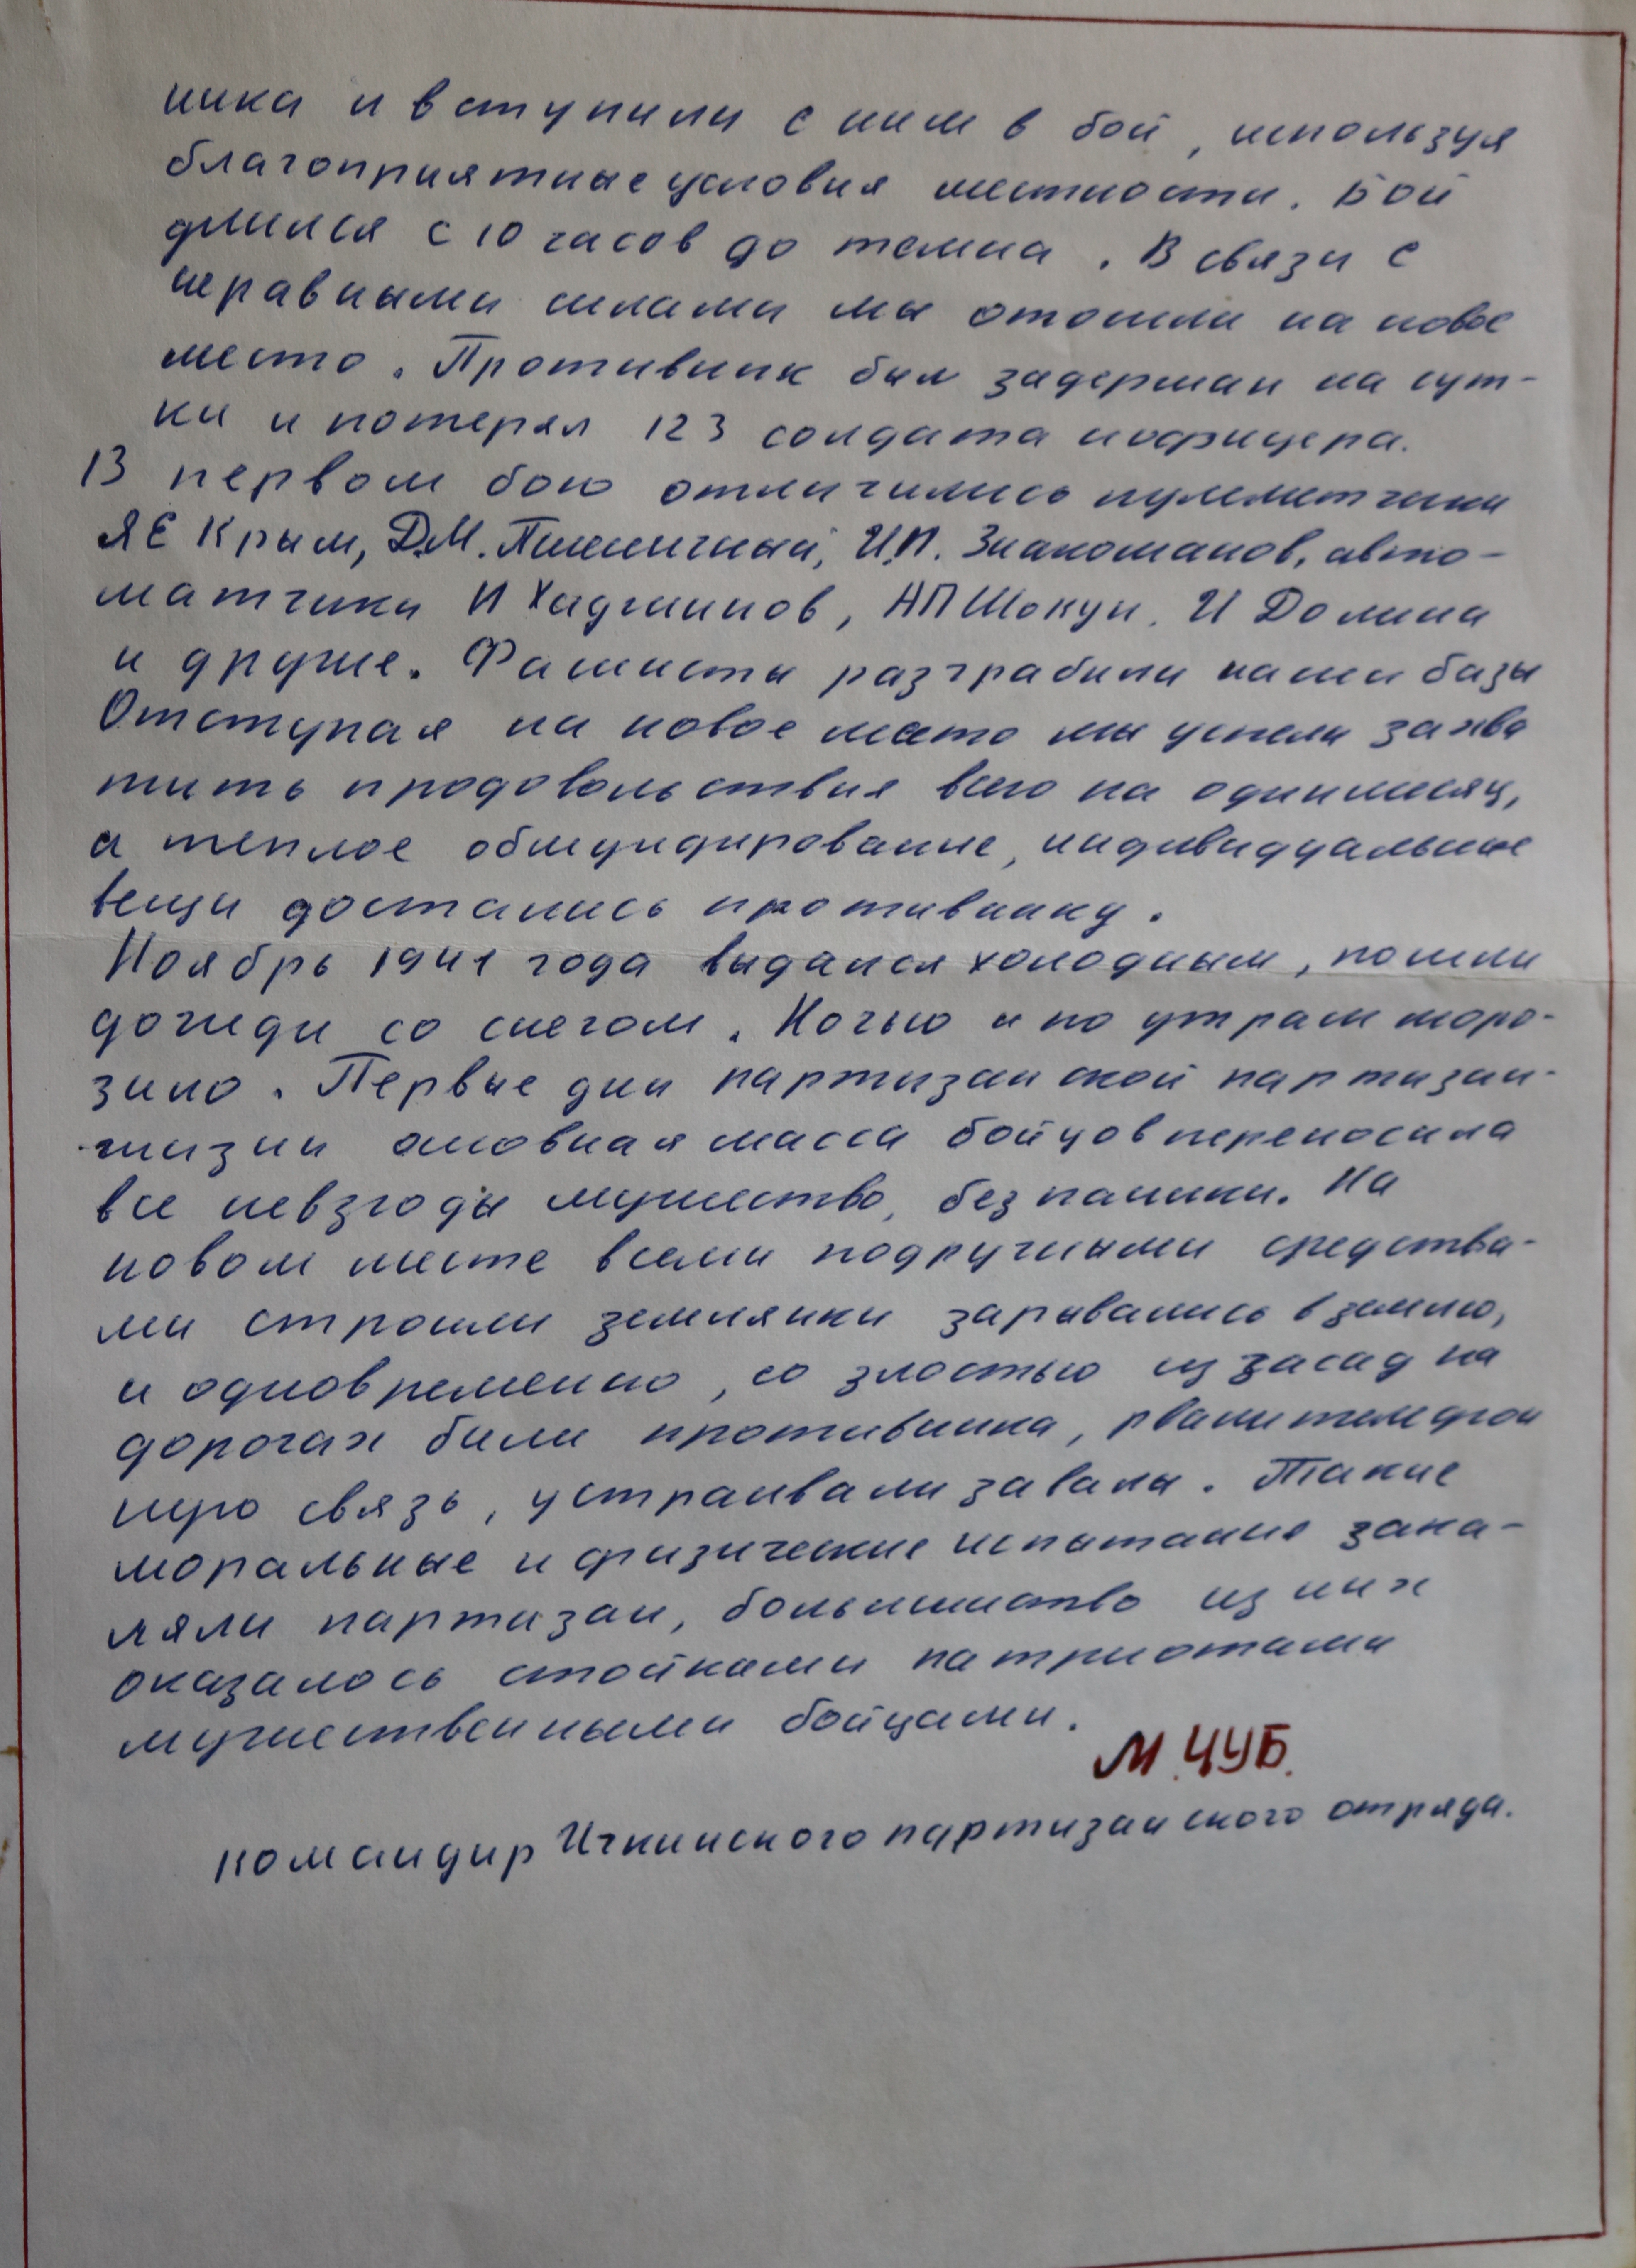 ника и вступили с ним в бой, используя
благоприятные условия местности. Бой
длился с 10 часов до темна. В связи с
неравными силами мы отошли на новое
место. Противник был задержан на сут-
ки и потерял 123 солдата и офицера.
В первом бою отличились пулеметчики
Я Е Крым, Д.М. Пшеничный, И.П. Знаноманов, авто-
матчики И Хаджиинов, АП Шокун. И Долина
и другие. Фашисты разграбили наши базы
Отступая на новое место мы успели захва
тить продовольствия всего на один месяц,
а теплое обмундирование, индивидуальные
вещи достались противнику.
Ноябрь 1941 года выдался холодным, пошли
дожди со снегом. Ночью и по утрам моро-
зило. Первые дни партизанской партизан-
жизни основная масса бойцов переносила
все невзгоды мужество, без паники. На
новом месте всеми подручными средства-
ми строили землянки зарывались в землю,
и одновременно, со злостью из засад на
дорогах били противника, рвали телефон
ную связь, устраивали завалы. Такие
моральные и физические испытания зака-
ляли партизан, большинство из них
оказалось стойкими патриотами
мужественными бойцами.
М. ЧУБ.
командир Ичкинского партизанского отряда.